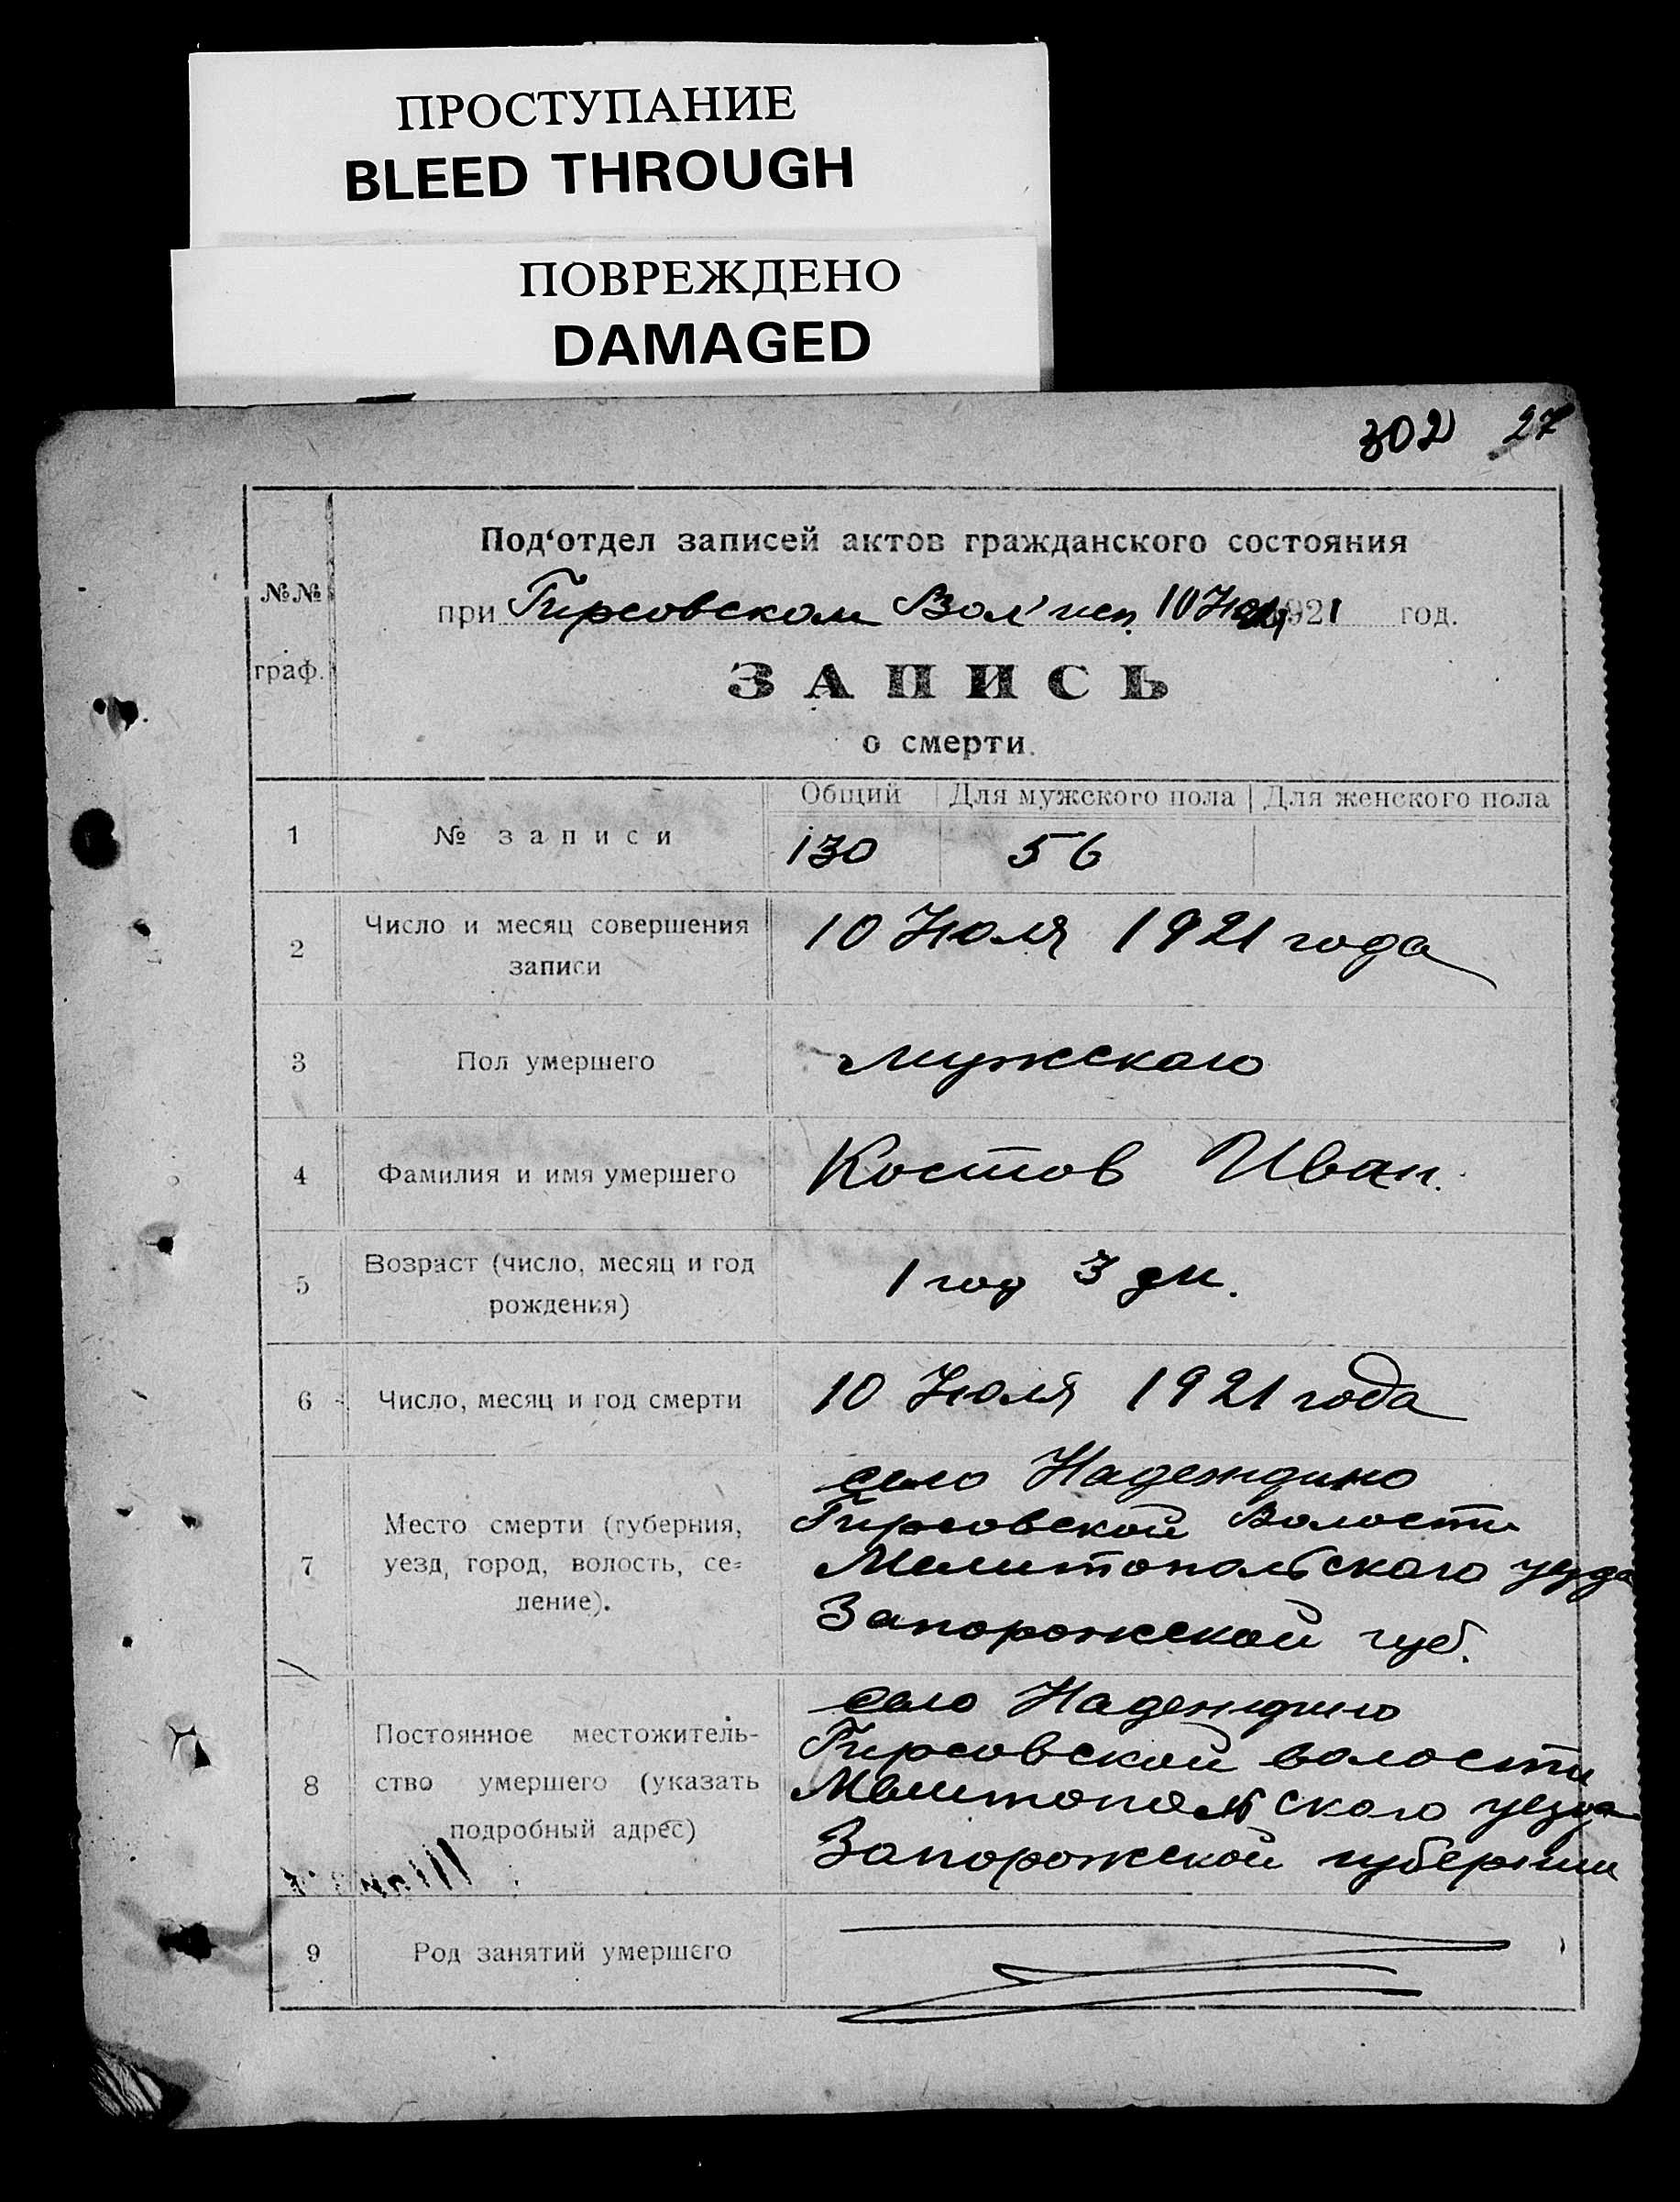 ПРОСТУПАНИЕ
BLEED THROUGH
ПОВРЕЖДЕНО
DAMAGED
302 27
Под‘отдел записей актов гражданского состояния
№№ граф.
при Гирсовском Вол'исп. 10 Июля 1921 год.
ЗАПИСЬ
о смерти.
Общий Для мужского пола Для женского пола
1 № записи 130 56
2 Число и месяц совершения 10 Июля 1921 года
записи
3 Пол умершего мужскаго
4 Фамилия и имя умершего Костов Иван.
5 Возраст (число, месяц и год 1 год 3 дн.
рождения)
6 Число, месяц и год смерти 10 Июля 1921 года
село Надеждино
Место смерти (губерния, Гирсовской Волости
7 уезд, город, волость, се- Мелитопольскаго уезда
ление). Запорожской губ.
село Надеждино
Постоянное местожитель- Гирсовской волости
8 ство умершего (указать Мелитопольскаго уезда
подробный адрес) Запорожской губернии
9 Род занятий умершего